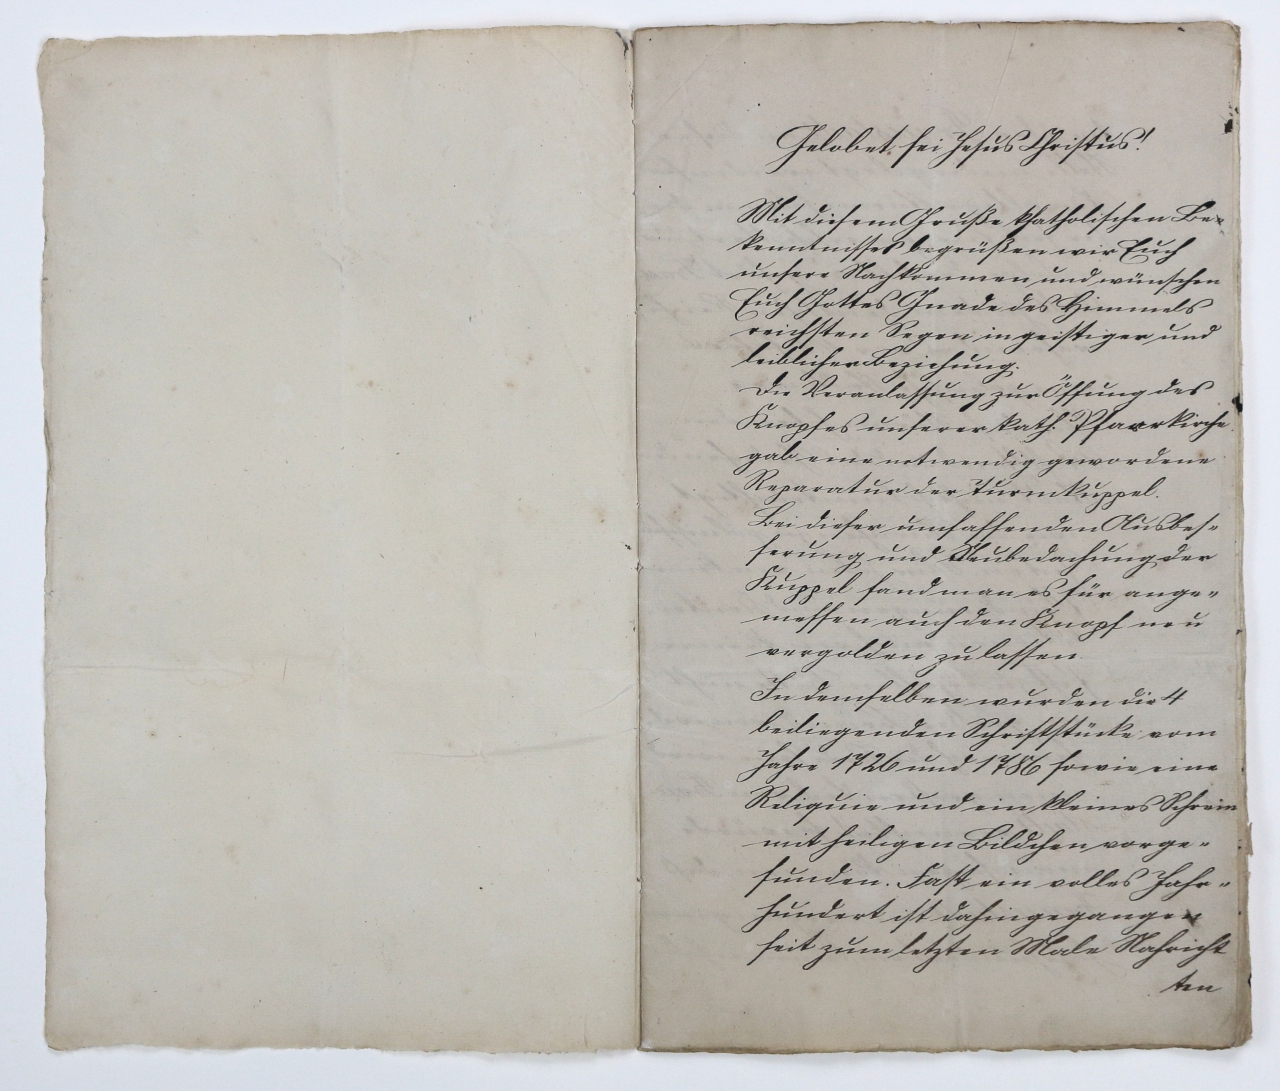 Gelobet sei Jesus Christus!
Mit diesem Gruße katholischen Be-
kenntnisses begrüßen wir Euch
unsere Nachkommen und wünschen
Euch Gottes Gnade des Himmels
reichsten Segen in geistiger und
leiblicher Beziehung.
Die Veranlassung zur Öffung des
Knopfes unserer kath. Pfarrkirche
gab eine notwendig gewordene
Reparatur der Turmkuppel.
Bei dieser umfassenden Ausbes-
serung und Neubedachung der
Kuppel fand man es für ange-
messen auch den Knopf neu
vergolden zu lassen.
In demselben wurden die 4
beiliegenden Schriftstücke vom
Jahre 1726 und 1786 sowie eine
Reliquie und ein kleines Schrein
mit heiligen Bildchen vorge-
funden. Fast ein volles Jahr-
hundert ist dahingegangen
seit zum letzten Male Nahricht
ten